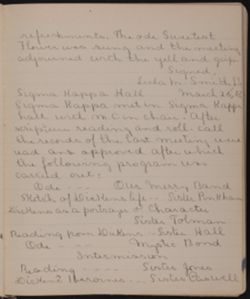 refreshments. The ode Sweetest
Flower was sung and the meeting
adjourned with the yell and grip.
Signed,
Leda M. Smith,
Sigma Kappa Hall March 26,
Sigma Kappa met in Sigma Kappa
hall with M. C. in chair. After
scripture reading and roll-call
the records of the last meeting were
read and approved after which
the following program was
carried out:
Ode - - - - Our Merry Band
Sketch of Dickens life - - Sister Pinkham
Dickens as a portrayer of Character
Sister Tolman
Reading from Dickens - Sister Hall
Ode - - - Mystic Bond
Intermission
Reading - - - - Sister Jones
Dickens' Heroines - - - Sister Caswell